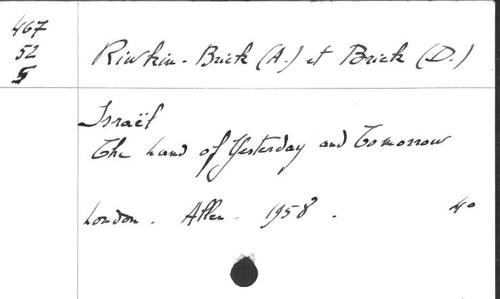 467
52
5
Riwkin-Brick (A.) et Brick (D.)
Israël
The Land of Yesterday and Tomorrow
London. Allen. 1958. 4o